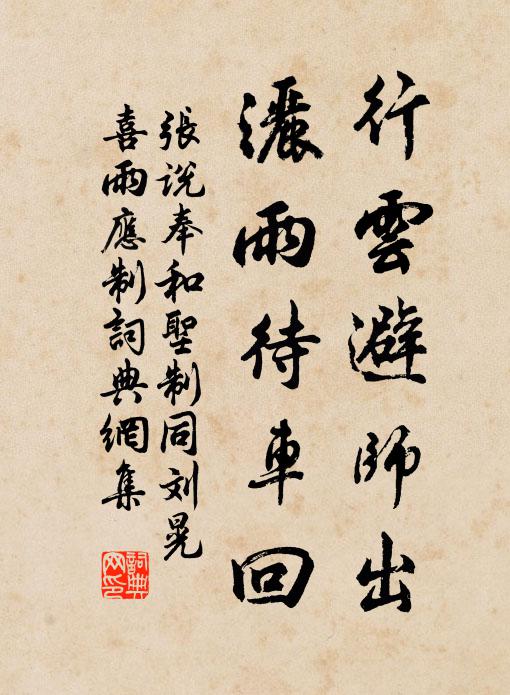 行雲避師出
灑雨待車回
張说奉和聖制同刘晃
喜雨應制詞典網集
詞典网印